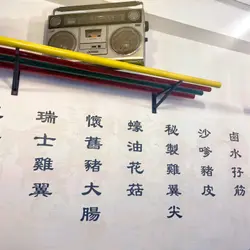 鹵水孖筋
沙嗲豬皮
秘製雞翼尖
蠔油花菇
懷舊豬大腸
瑞士雞翼